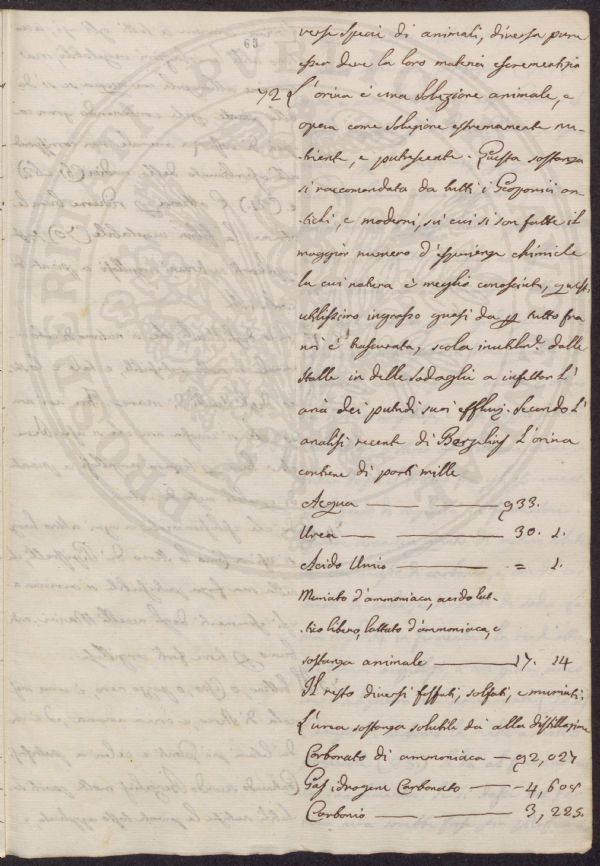 63
verse specie di animali, diversa pure
esser deve la loro materia escrementizia
72 L'orina è una soluzione animale, e
opera come soluzione estremamente nu-
triente, e putrescente. Questa sostanza
si raccomandata da tutti i Geoponici an-
tichi, e moderni, su cui si son fatte il
maggior numero d'esperienze chimiche
la cui natura è meglio conosciuta, quest'
utilissimo ingrasso quasi da per tutto fra
noi è trascurata, scola inutilmte dalle
stalle in delle a infettar l'
aria dei putridi suoi effluvj. Secondo l'
analisi recente di Berzelius l'orina
contiene di parti mille
Acqua — — 933.
Urea — — 30. 1.
Acido Urico — = 1.
Muriato d'ammoniaca, acido lat-
tico libero, lattato d'ammoniaca, e
sostanza animale — 17. 14
Il resto diversi fosfati, solfati, e muriati.
L'urea sostanza solubile dà alla distillazione
Carbonato di ammoniaca — 92,027
Gas idrogene Carbonato — 4,608
Carbonio — — 3,225.